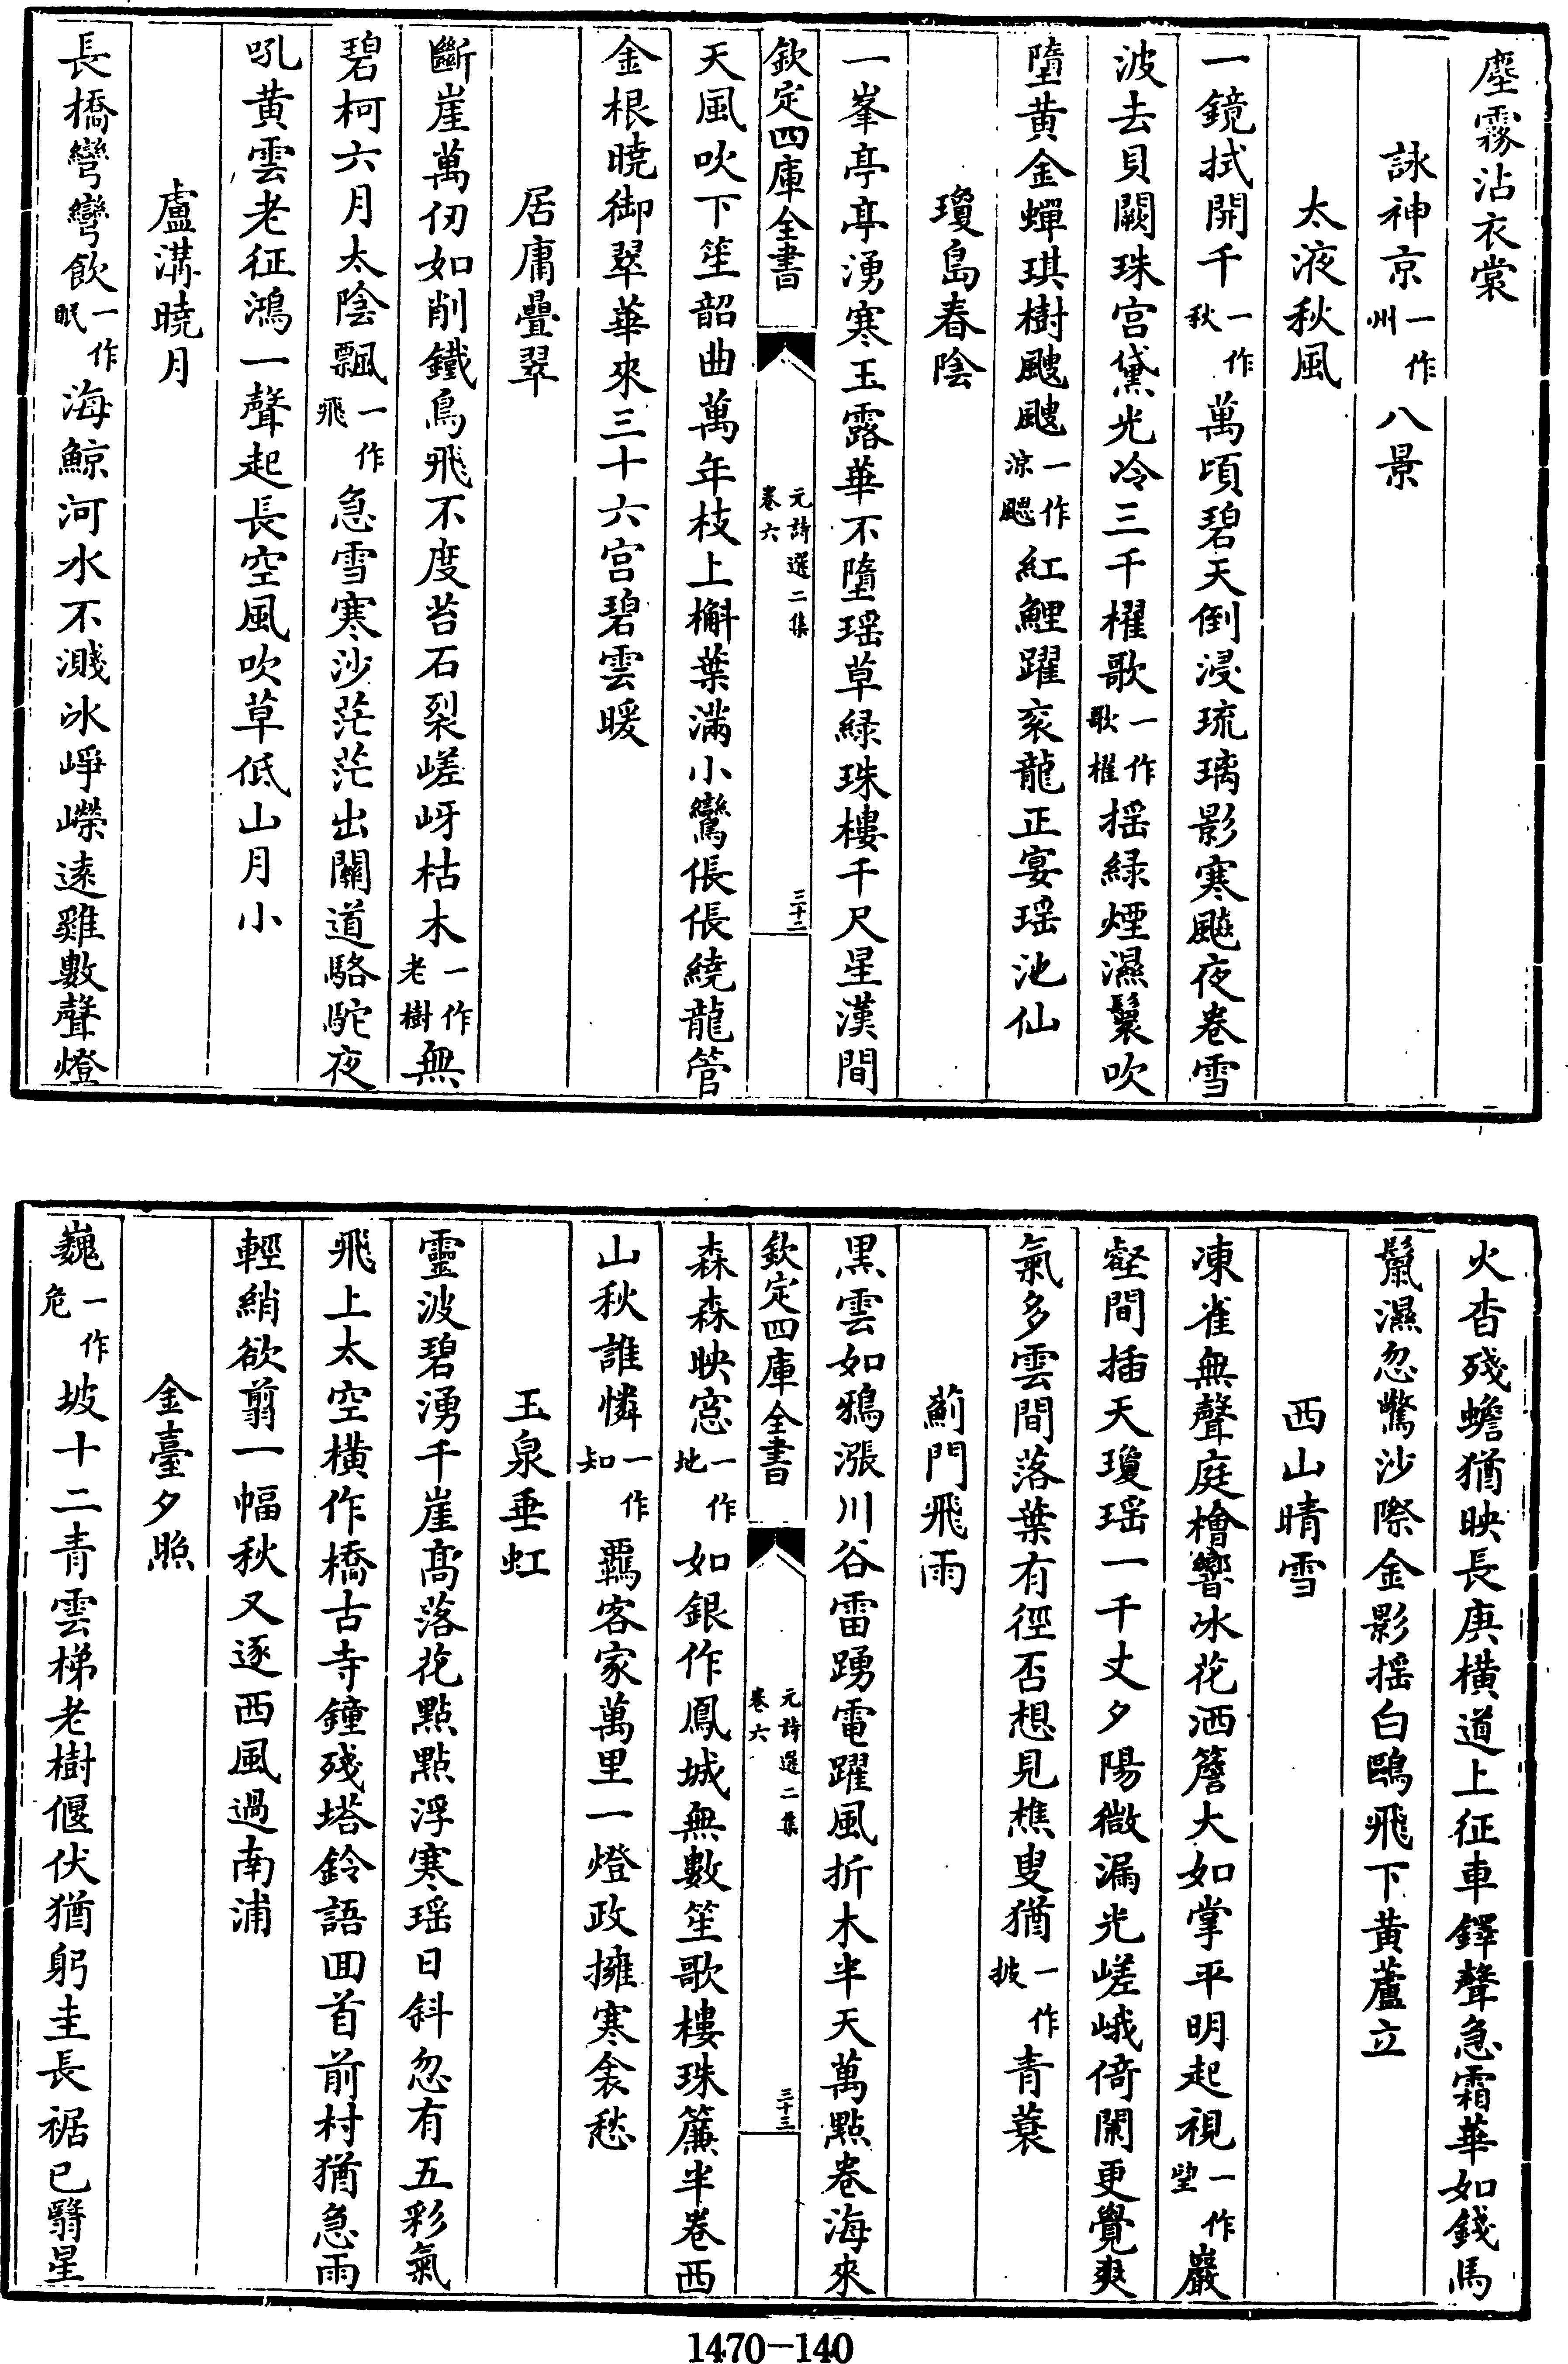 塵霧沾衣裳
詠神京一作州八景
太液秋風
一鏡拭開千一作秋萬頃碧天倒浸琉璃影寒飈夜卷雪
波去貝闕珠宮黛光冷三千櫂歌一作歌櫂揺緑煙濕鬟吹
墮黄金蟬琪樹颼颼一作涼颸紅鯉躍衮龍正宴瑶池仙
瓊島春陰
一峯亭亭湧寒玉露華不墮瑶草緑珠樓千尺星漢間
欽定四庫全書
元詩選二集
卷六
三十二
天風吹下笙韶曲萬年枝上槲葉滿小鸞倀倀繞龍管
金根曉御翠華來三十六宮碧雲暖
居庸疊翠
斷崖萬仞如削鐵鳥飛不度苔石裂嵯岈枯木一作老樹無
碧柯六月太陰飄一作飛急雪寒沙茫茫出關道駱駝夜
吼黄雲老征鴻一聲起長空風吹草低山月小
盧溝曉月
長橋彎彎飲一作眠海鯨河水不濺冰崢嶸逺雞數聲燈
火杳殘蟾猶映長庚横道上征車鐸聲急霜華如錢馬
鬣濕忽驚沙際金影揺白鷗飛下黄蘆立
西山晴雪
凍雀無聲庭檜響冰花洒簷大如掌平明起視一作望巖
壑間插天瓊瑶一千丈夕陽微漏光嵯峨倚闌更覺爽
氣多雲間落葉有徑否想見樵叟猶一作披青蓑
薊門飛雨
黒雲如鴉漲川谷雷踴電躍風折木半天萬點卷海來
欽定四庫全書
元詩選二集
卷六
三十三
森森映窓一作地如銀作鳳城無數笙歌樓珠簾半卷西
山秋誰憐一作知覊客家萬里一燈政擁寒衾愁
玉泉垂虹
靈波碧湧千崖高落花點點浮寒瑶日斜忽有五彩氣
飛上太空横作橋古寺鐘殘塔鈴語囬首前村猶急雨
輕綃欲翦一幅秋又逐西風過南浦
金臺夕照
巍一作危坡十二青雲梯老樹偃伏猶躬圭長裾已翳星
1470-140